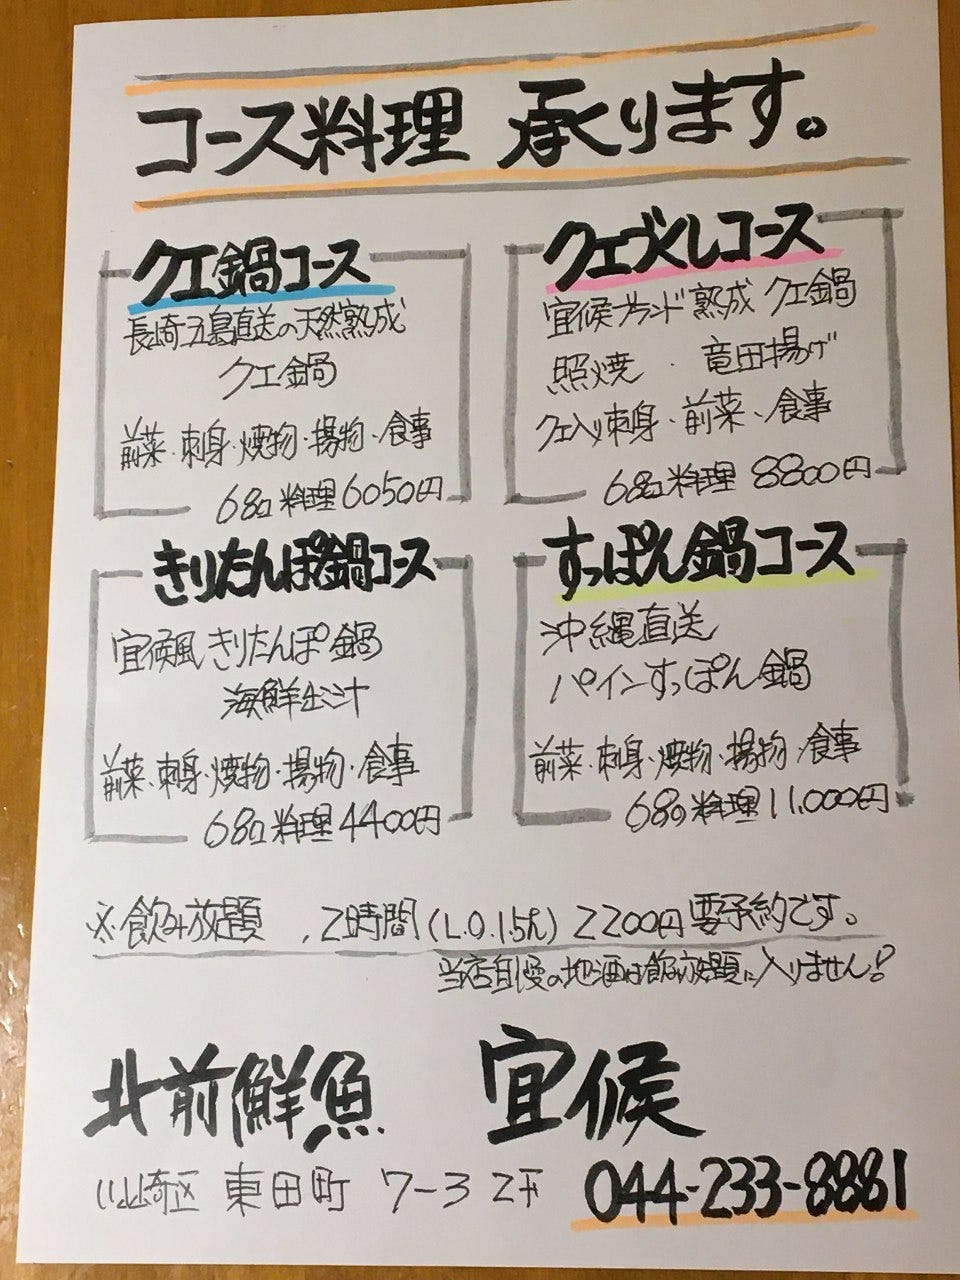 コース料理 承ります。
クエ鍋コース
長崎五島直送の天然熟成
クエ鍋
前菜・刺身・焼物・揚物・食事
6品料理6050円
クエづくしコース
宜候ブランド熟成 クエ鍋
照焼 ・ 竜田揚げ
クエ入り刺身・前菜・食事
6品料理 8800円
きりたんぽ鍋コース
宜候風きりたんぽ鍋
海鮮出汁
前菜・刺身・焼物・揚物・食事
6品料理4400円
すっぽん鍋コース
沖縄直送
パインすっぽん鍋
前菜・刺身・焼物・揚物・食事
6品料理11,000円
※飲み放題 、2時間(L.O.1.5h) 2200円 要予約です。
当店自慢の地酒は飲み放題に入りません!
北前鮮魚 宜候
川崎区 東田町 7-3 2F 044-233-8881